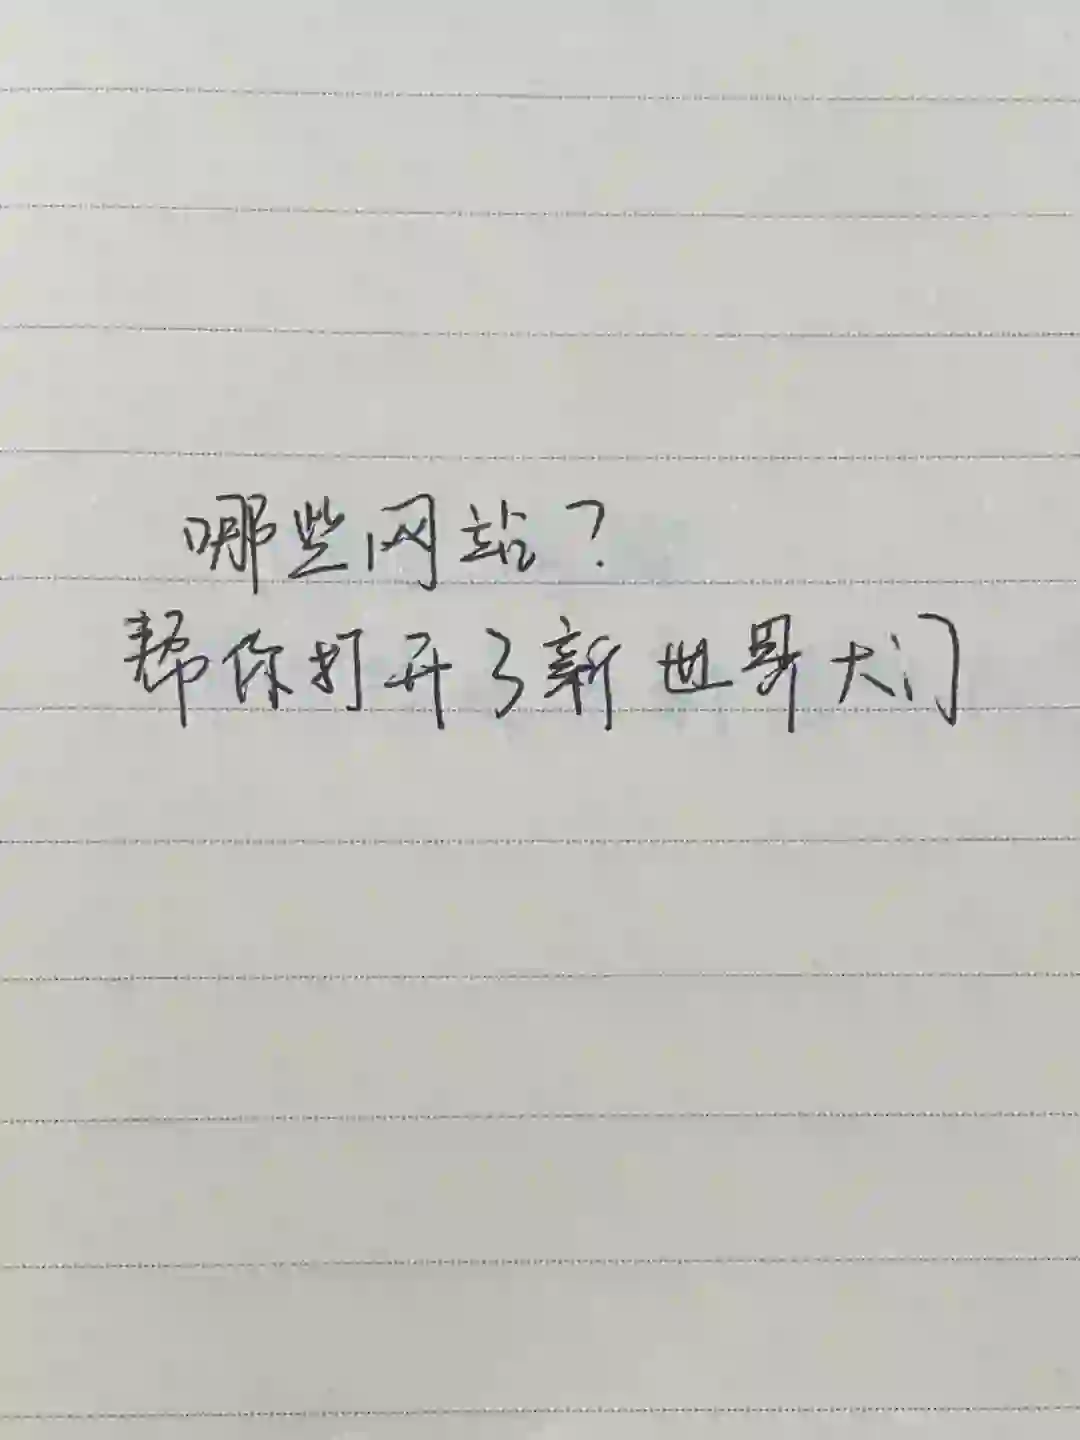 哪些网站？
帮你打开了新世界大门